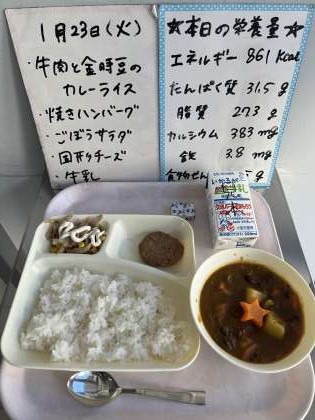 1月23日(火)
・牛肉と金時豆の
カレーライス
・焼きハンバーグ
・ごぼうサラダ
・固形チーズ
・牛乳
☆本日の栄養量☆
エネルギー 861 kcal
たんぱく質 31.5 g
脂質 27.3 g
カルシウム 383 mg
鉄 3.8 mg
食物せん g
牛乳